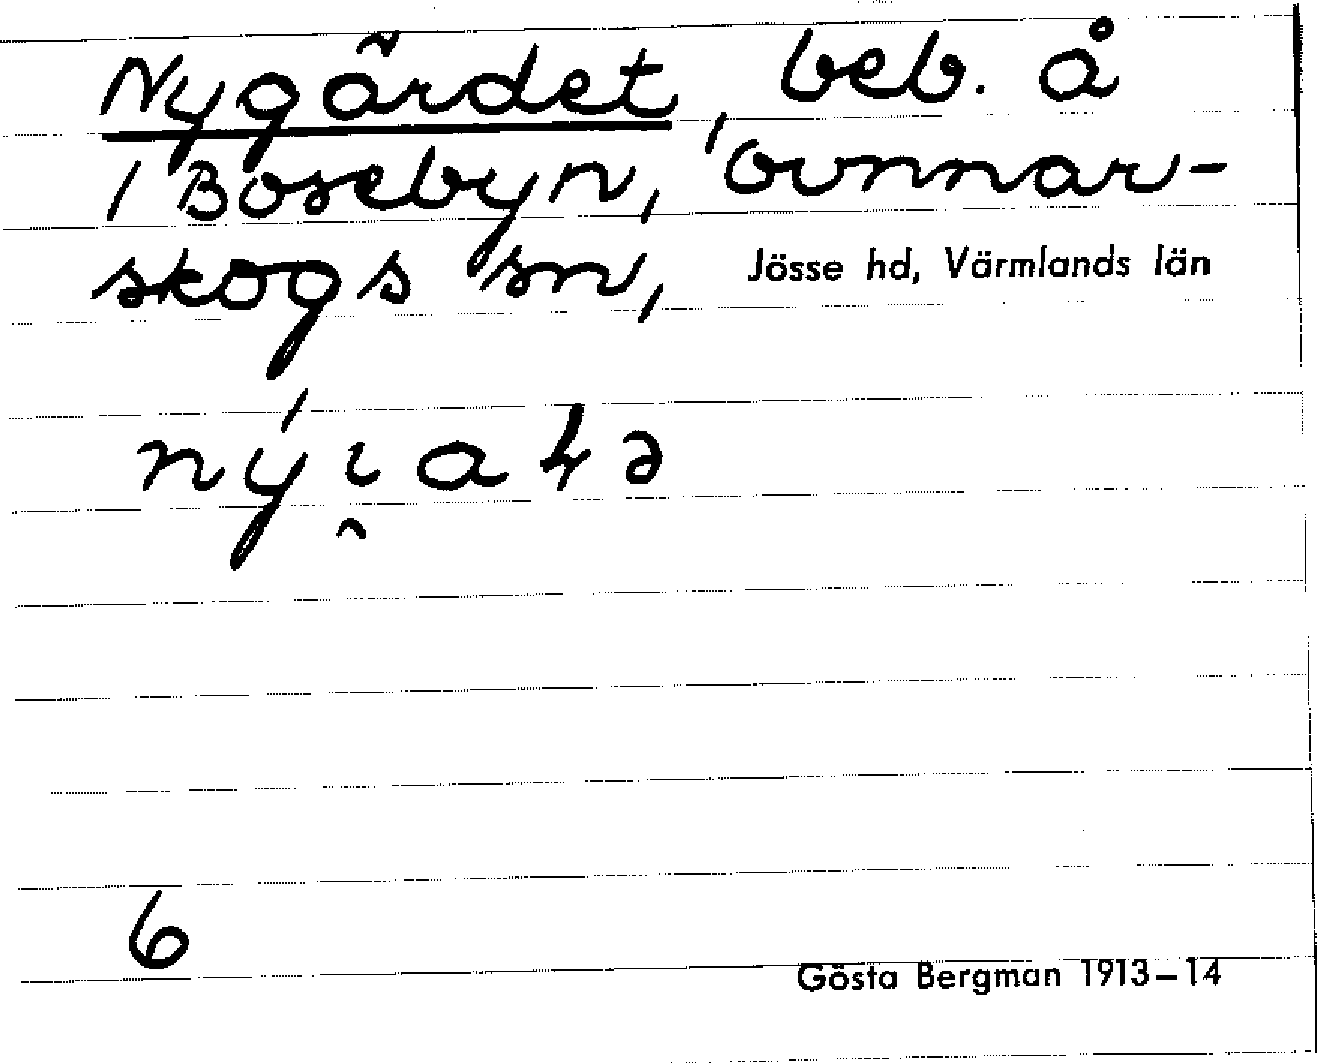 Nygärdet, beb. å
1 Bosebyn, Gunnar-
skogs sn, Jösse hd, Värmlands län
6
Gösta Bergman 1913–14